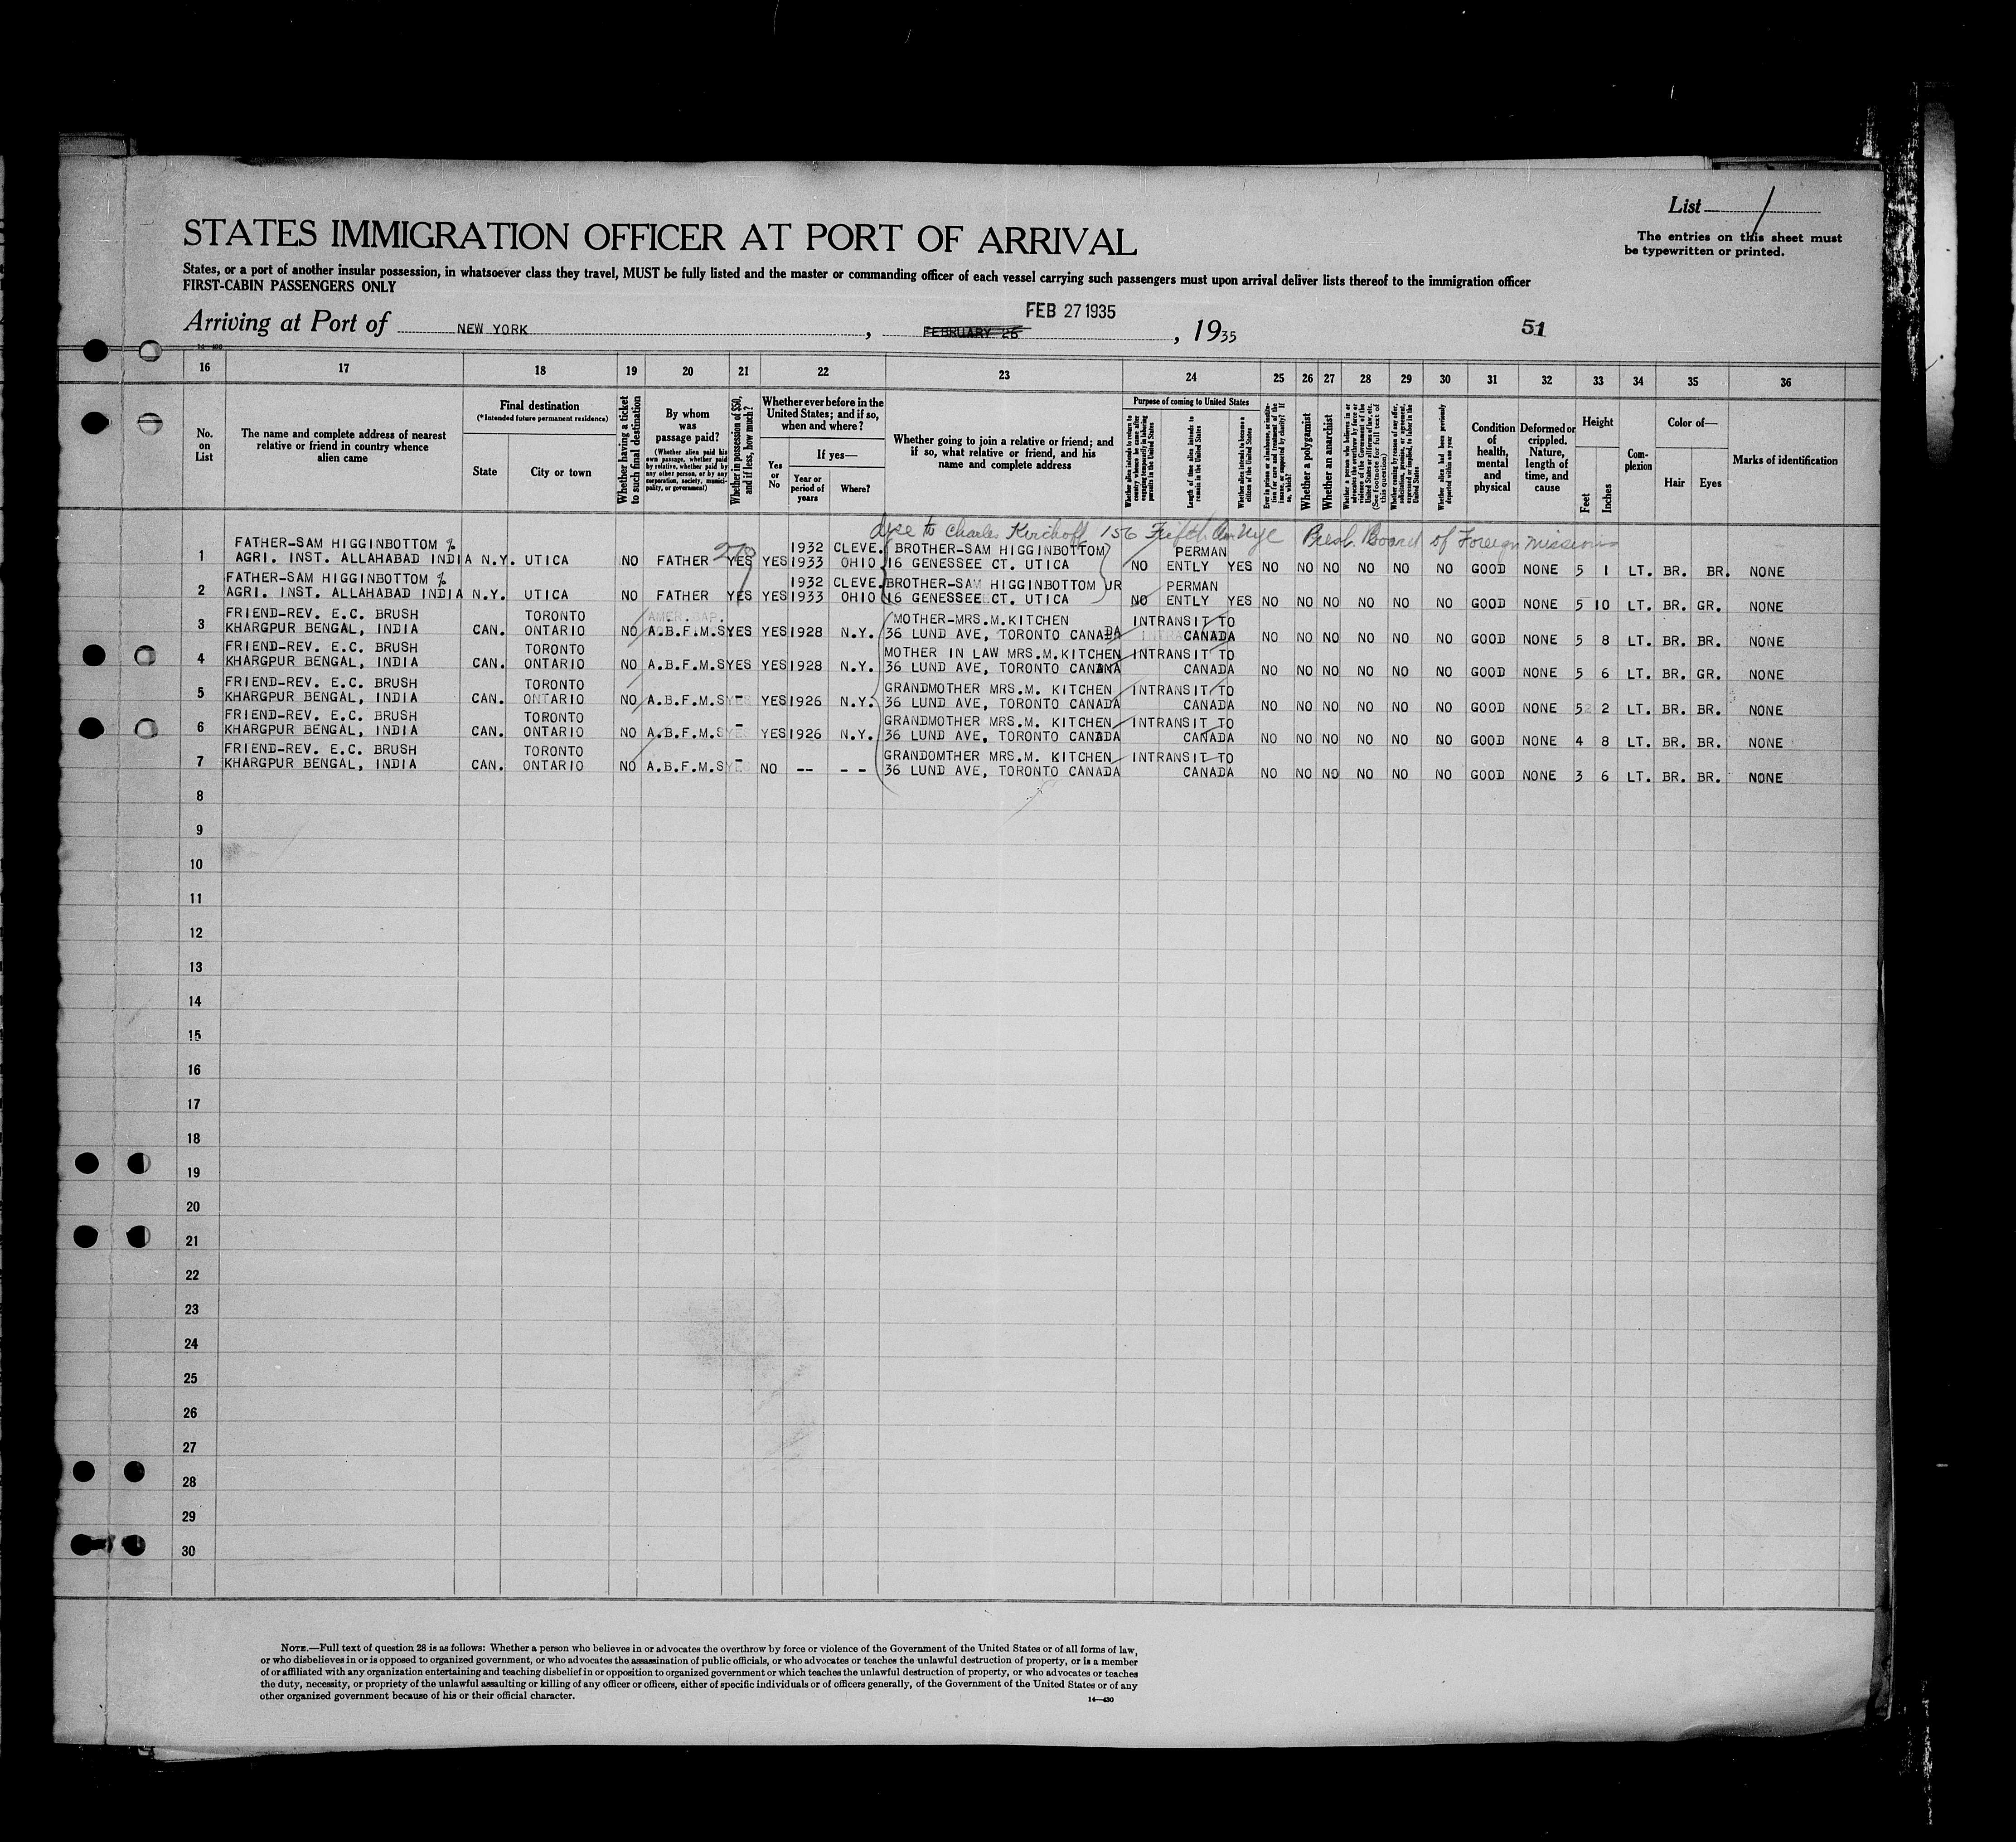 List 1
The entries on this sheet must
be typewritten or printed.
STATES IMMIGRATION OFFICER AT PORT OF ARRIVAL
States, or a port of another insular possession, in whatsoever class they travel, MUST be fully listed and the master or commanding officer of each vessel carrying such passengers must upon arrival deliver lists thereof to the immigration officer
FIRST-CABIN PASSENGERS ONLY
FEB 27 1935
Arriving at Port of NEW YORK, FEBRUARY 26, 1935
51
16 17 18 19 20 21 22 23 24 25 26 27 28 29 30 31 32 33 34 35 36
No. on List
The name and complete address of nearest relative or friend in country whence alien came
Final destination
(*Intended future permanent residence)
State
City or town
Whether having a ticket to such final destination
By whom was passage paid?
(Whether alien paid his own passage, whether paid by relative, whether paid by any other person, or by any corporation, society, municipality, or government)
Whether in possession of $50, and if less, how much?
Whether ever before in the United States; and if so, when and where?
Yes or No
If yes—
Year or period of years
Where?
Whether going to join a relative or friend; and if so, what relative or friend, and his name and complete address
Purpose of coming to United States
Whether alien intends to return to country whence he came after engaging temporarily in laboring pursuits in the United States
Length of time alien intends to remain in the United States
Whether alien intends to become a citizen of the United States
Ever in prison or almshouse, or institution for care and treatment of the insane, or supported by charity? If so, which?
Whether a polygamist
Whether an anarchist
Whether a person who believes in or advocates the overthrow by force or violence of the Government of the United States or all forms of law, etc. (See footnote for full text of this question)
Whether coming by reason of any offer, solicitation, promise, or agreement, expressed or implied, to labor in the United States
Whether alien had been previously deported within one year
Condition of health, mental and physical
Deformed or crippled. Nature, length of time, and cause
Height
Feet
Inches
Complexion
Color of—
Hair
Eyes
Marks of identification
to Charles Kirchoff 156 Fifth Av Nyc Presb. Board of Foreign missions
1 FATHER-SAM HIGGINBOTTOM % AGRI. INST. ALLAHABAD INDIA N.Y. UTICA NO FATHER YES YES 1932 1933 CLEVE. OHIO BROTHER-SAM HIGGINBOTTOM 16 GENESSEE CT. UTICA NO PERMANENTLY YES NO NO NO NO NO NO GOOD NONE 5 1 LT. BR. BR. NONE
2 FATHER-SAM HIGGINBOTTOM % AGRI. INST. ALLAHABAD INDIA N.Y. UTICA NO FATHER YES YES 1932 1933 CLEVE. OHIO BROTHER-SAM HIGGINBOTTOM UR 16 GENESSEE CT. UTICA NO PERMANENTLY YES NO NO NO NO NO NO GOOD NONE 5 10 LT. BR. GR. NONE
3 FRIEND-REV. E.C. BRUSH KHARGPUR BENGAL, INDIA CAN. TORONTO ONTARIO NO A.B.F.M.S YES YES 1928 N.Y. MOTHER-MRS.M.KITCHEN 36 LUND AVE, TORONTO CANADA INTRANSIT TO CANADA NO NO NO NO NO NO GOOD NONE 5 8 LT. BR. BR. NONE
4 FRIEND-REV. E.C. BRUSH KHARGPUR BENGAL, INDIA CAN. TORONTO ONTARIO NO A.B.F.M.S YES YES 1928 N.Y. MOTHER IN LAW MRS.M.KITCHEN 36 LUND AVE, TORONTO CANANA INTRANSIT TO CANADA NO NO NO NO NO NO GOOD NONE 5 6 LT. BR. GR. NONE
5 FRIEND-REV. E.C. BRUSH KHARGPUR BENGAL, INDIA CAN. TORONTO ONTARIO NO A.B.F.M.S – YES 1926 N.Y. GRANDMOTHER MRS.M. KITCHEN 36 LUND AVE, TORONTO CANADA INTRANSIT TO CANADA NO NO NO NO NO NO GOOD NONE 5 2 LT. BR. BR. NONE
6 FRIEND-REV. E.C. BRUSH KHARGPUR BENGAL, INDIA CAN. TORONTO ONTARIO NO A.B.F.M.S – YES 1926 N.Y. GRANDMOTHER MRS.M. KITCHEN 36 LUND AVE, TORONTO CANADA INTRANSIT TO CANADA NO NO NO NO NO NO GOOD NONE 4 8 LT. BR. BR. NONE
7 FRIEND-REV. E.C. BRUSH KHARGPUR BENGAL, INDIA CAN. TORONTO ONTARIO NO A.B.F.M.S – NO -- -- GRANDOMTHER MRS.M. KITCHEN 36 LUND AVE, TORONTO CANADA INTRANSIT TO CANADA NO NO NO NO NO NO GOOD NONE 3 6 LT. BR. BR. NONE
8
9
10
11
12
13
14
15
16
17
18
19
20
21
22
23
24
25
26
27
28
29
30
NOTE.—Full text of question 28 is as follows: Whether a person who believes in or advocates the overthrow by force or violence of the Government of the United States or of all forms of law,
or who disbelieves in or is opposed to organized government, or who advocates the assassination of public officials, or who advocates or teaches the unlawful destruction of property, or is a member
of or affiliated with any organization entertaining and teaching disbelief in or opposition to organized government or which teaches the unlawful destruction of property, or who advocates or teaches
the duty, necessity, or propriety of the unlawful assaulting or killing of any officer or officers, either of specific individuals or of officers generally, of the Government of the United States or of any
other organized government because of his or their official character.
14—430